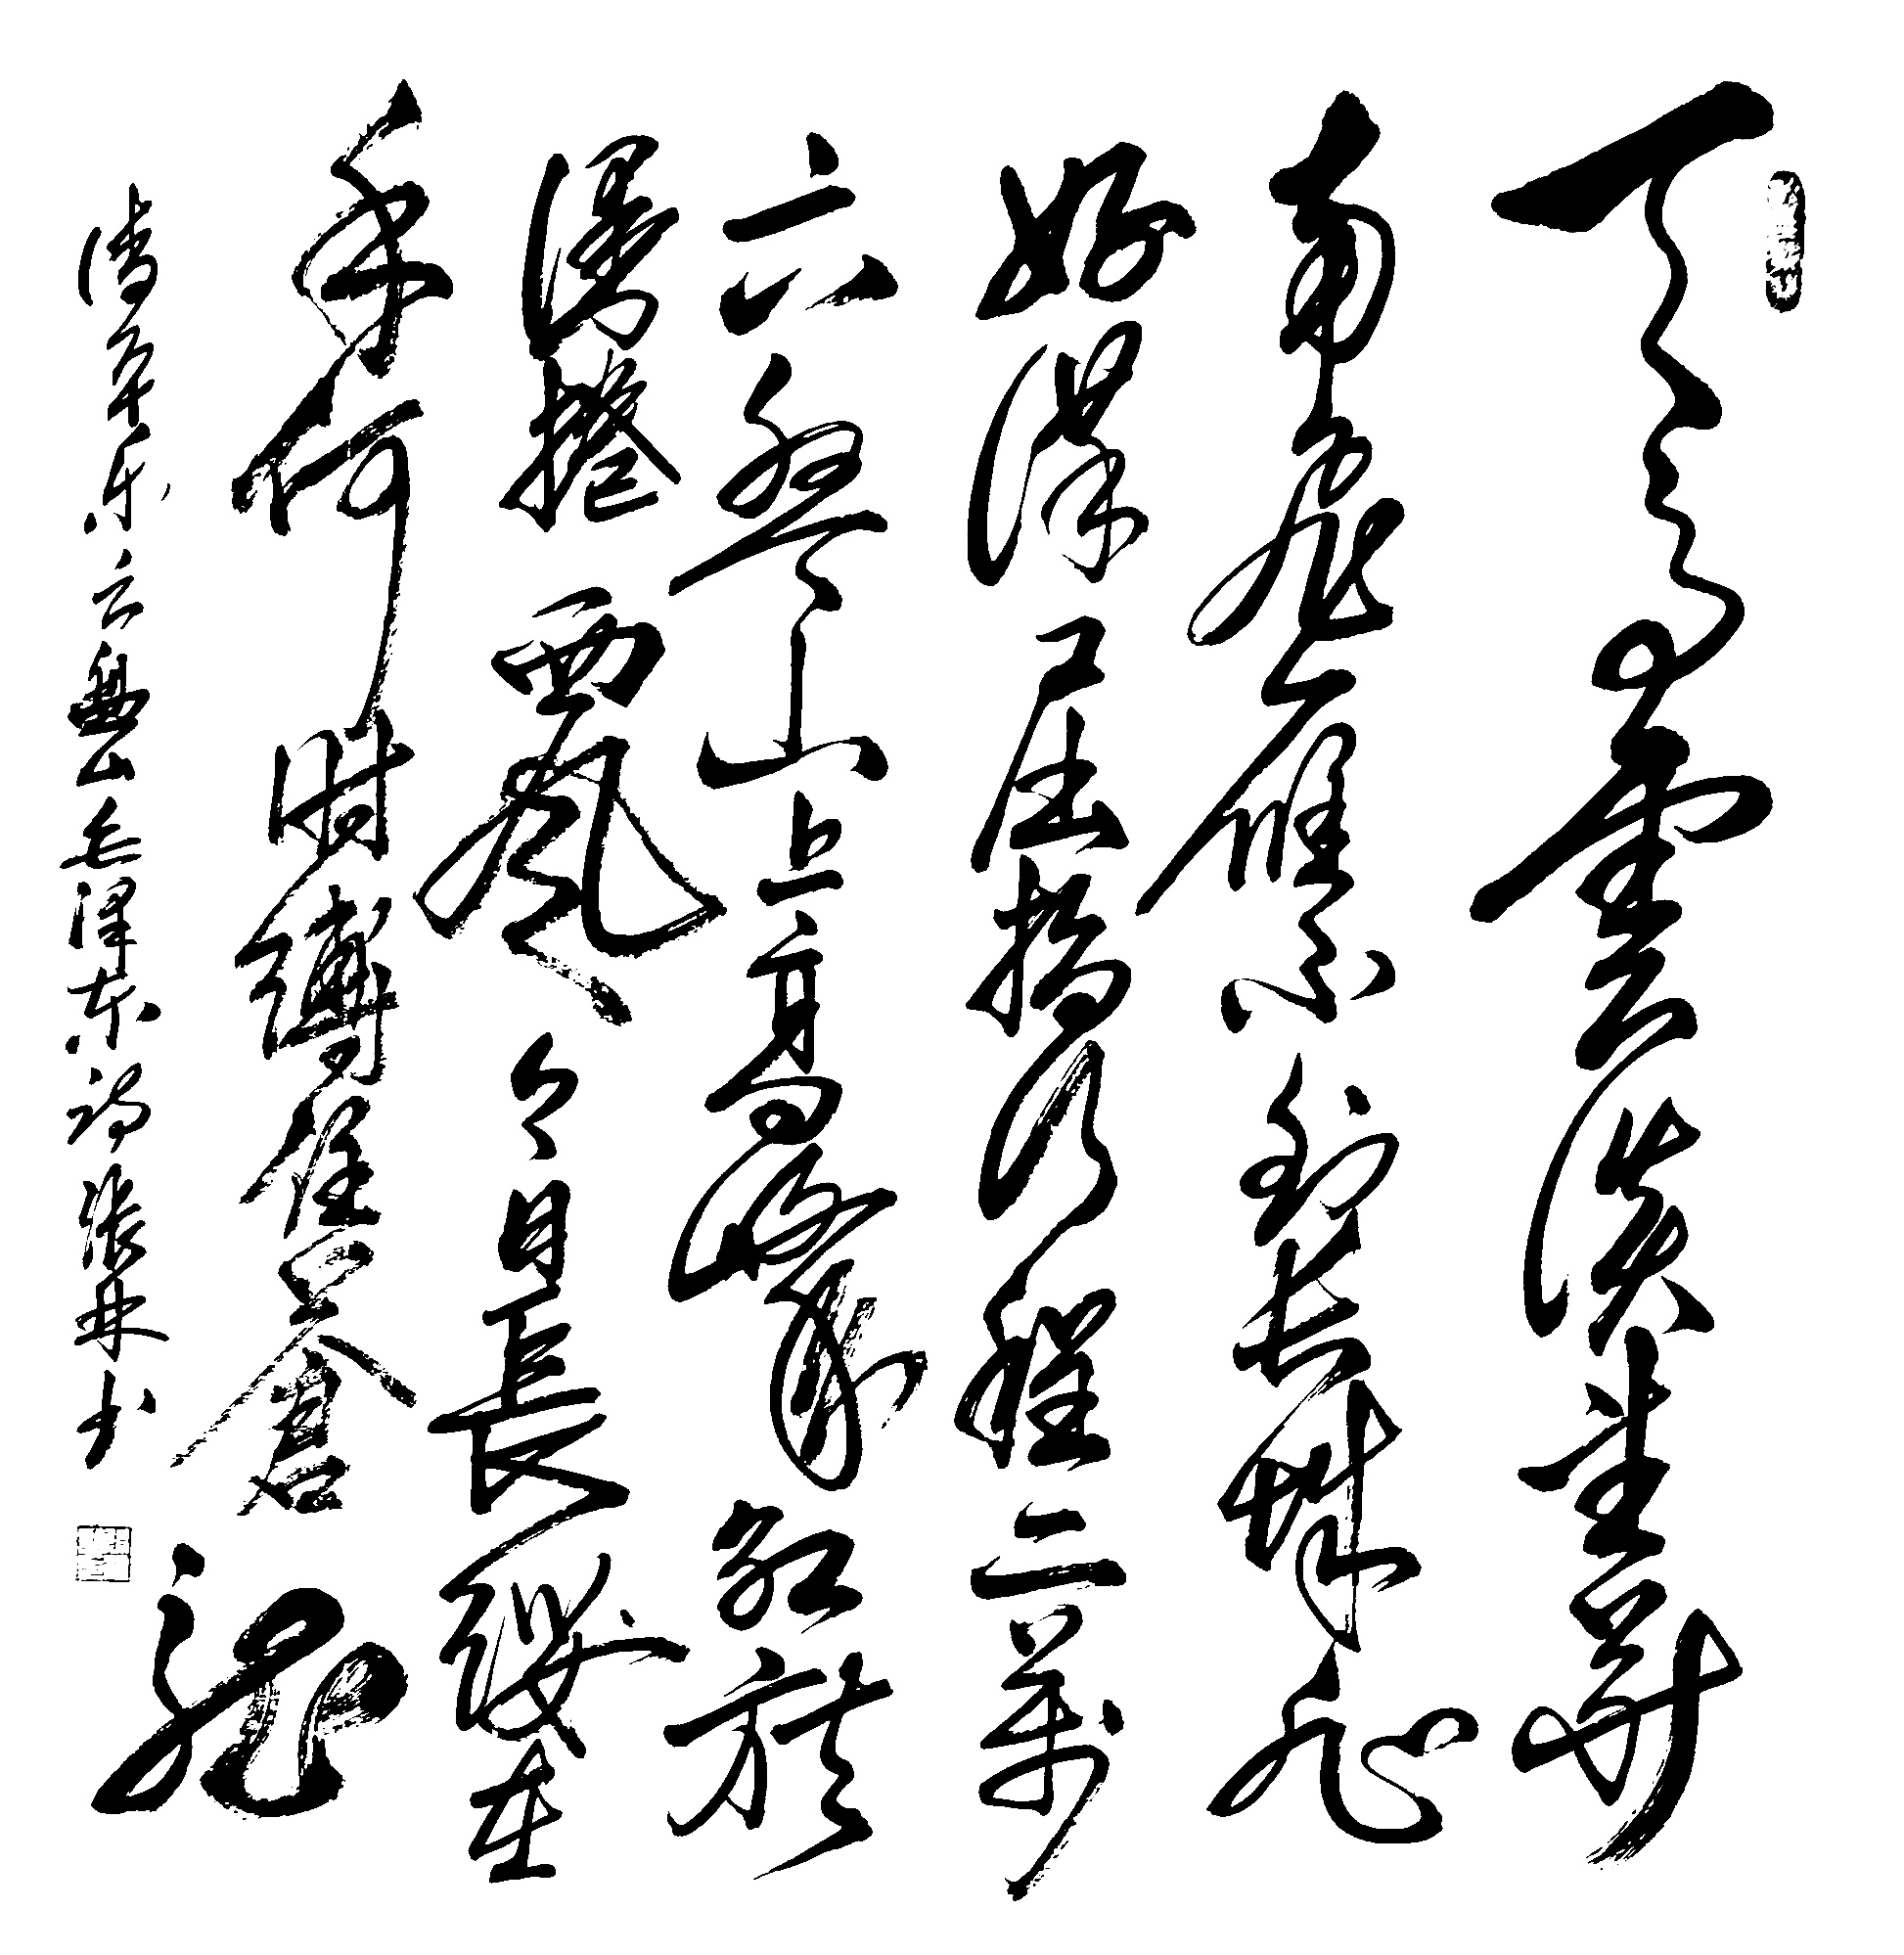 天高雲淡望斷
南飛雁不到长城非
好漢屈指行程二萬
六盤山上高峰紅旗
漫捲西風今日長纓在
手何时縛住蒼龍
清平乐六盤山毛泽东词张林书